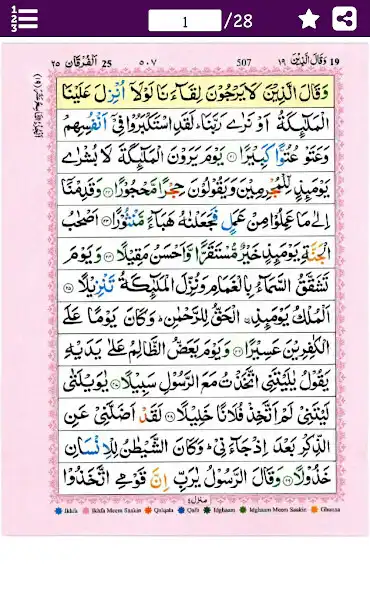 1 /28
19 وَقَالَ الَّذِيْنَ ١٩ 507 ٥٠٧ 25 اَلْفُرْقَان ٢٥
وَقَالَ الَّذِيْنَ لَا يَرْجُوْنَ لِقَآءَنَا لَوْلَاۤ اُنْزِلَ عَلَيْنَا
الْمَلٰٓئِكَةُ اَوْ نَرٰى رَبَّنَا ؕ لَقَدِ اسْتَكْبَرُوْا فِىْۤ اَنْفُسِهِمْ
وَعَتَوْ عُتُوًّا كَبِيْرًا ﴿۲۱﴾ يَوْمَ يَرَوْنَ الْمَلٰٓئِكَةَ لَا بُشْرٰى
يَوْمَئِذٍ لِّلْمُجْرِمِيْنَ وَيَقُوْلُوْنَ حِجْرًا مَّحْجُوْرًا ﴿۲۲﴾ وَقَدِمْنَاۤ
اِلٰى مَا عَمِلُوْا مِنْ عَمَلٍ فَجَعَلْنٰهُ هَبَآءً مَّنْثُوْرًا ﴿۲۳﴾ اَصْحٰبُ
الْجَنَّةِ يَوْمَئِذٍ خَيْرٌ مُّسْتَقَرًّا وَّاَحْسَنُ مَقِيْلًا ﴿۲۴﴾ وَيَوْمَ
تَشَقَّقُ السَّمَآءُ بِالْغَمَامِ وَنُزِّلَ الْمَلٰٓئِكَةُ تَنْزِيْلًا ﴿۲۵﴾
اَلْمُلْكُ يَوْمَئِذِ ۣالْحَقُّ لِلرَّحْمٰنِ ؕ وَكَانَ يَوْمًا عَلَى
الْكٰفِرِيْنَ عَسِيْرًا ﴿۲۶﴾ وَيَوْمَ يَعَضُّ الظَّالِمُ عَلٰى يَدَيْهِ
يَقُوْلُ يٰلَيْتَنِى اتَّخَذْتُ مَعَ الرَّسُوْلِ سَبِيْلًا ﴿۲۷﴾ يٰوَيْلَتٰى
لَيْتَنِىْ لَمْ اَتَّخِذْ فُلَانًا خَلِيْلًا ﴿۲۸﴾ لَقَدْ اَضَلَّنِىْ عَنِ
الذِّكْرِ بَعْدَ اِذْ جَآءَنِىْ ؕ وَكَانَ الشَّيْطٰنُ لِلْاِنْسَانِ
خَذُوْلًا ﴿۲۹﴾ وَقَالَ الرَّسُوْلُ يٰرَبِّ اِنَّ قَوْمِى اتَّخَذُوْا
منزل ٤
Ikhfa Ikhfa Meem Saakin Qalqala Qalb Idghaam Idghaam Meem Saakin Ghunna